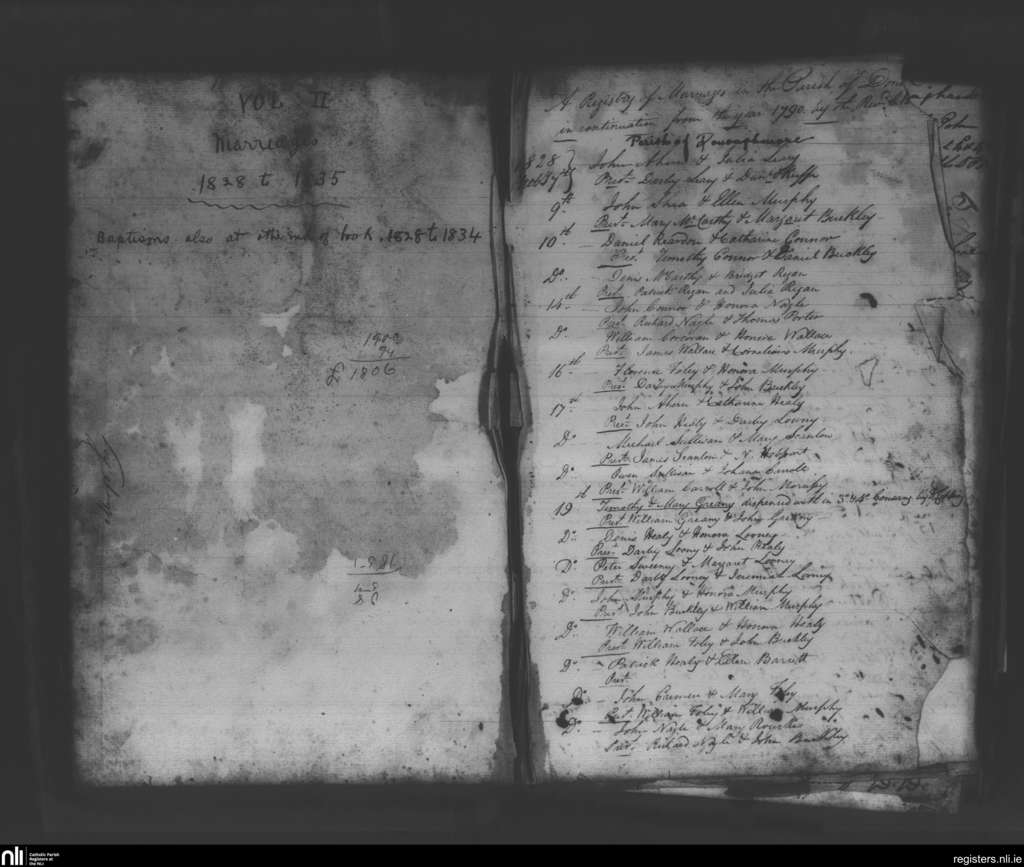 VOL II
Marriages
1828 to 1835
Baptisms also at the end of book, 1828 to 1834
1900
94
£ 1806
A Registry of Marriages in the Parish of
in continuation from the year 1790. by the Revd.
Parish of Donoughmore
1828 John Ahern & Julia Leary
Feb. 7th Prest. Darby Leary & Danl.
9th John Shea & Ellen Murphy
Prest. Mary McCarthy & Margaret Buckley
10th Daniel Reardon & Catharine Connor
Pres. Timothy Connor & Daniel Buckley
Do. Denis McCarthy & Bridget Ryan
Pres. Patrick Ryan and Julia Ryan
14th John Connor & Honora Nagle
Prest. Richard Nagle & Thomas Porter
Do. William Corcoran & Honora Wallace
Prest. James Wallace & Cornelious Murphy.
16th Florence Foley & Honora Murphy
Prest. Murphy & John Buckley
17th John Ahern & Catharine Healy
Prest. John Healy & Darby Looney
Do Michael Sullivan & Mary Scanlon
Prest. James Scanlon & N.
Do Owen Sullivan & Johana Carroll
Prest. William Carroll & John Murphy
19th Timothy & Mary Greany dispensed with in 3d & 4th
Prest William Greany & John Greany
Do. Denis Healy & Honora Looney
Pres. Darby Loony & John Healy
Do Peter Sweeney & Margaret Looney
Prest. Darby Looney & Jeremiah Looney
Do. John Murphy & Honora Murphy
Prest. John Buckley & William Murphy
Do. William Wallace & Honora Healy
Prest. William Foley & John Buckley
Do. Patrick Healy & Ellen Barrett
Prest.
Do. John & Mary Foley
Prest. William Foley & William Murphy
Do. John Nagle & Mary Rourke
Prest. Richard Nagle & John Buckley
nli
Catholic Parish
Registers at
the NLI
registers.nli.ie